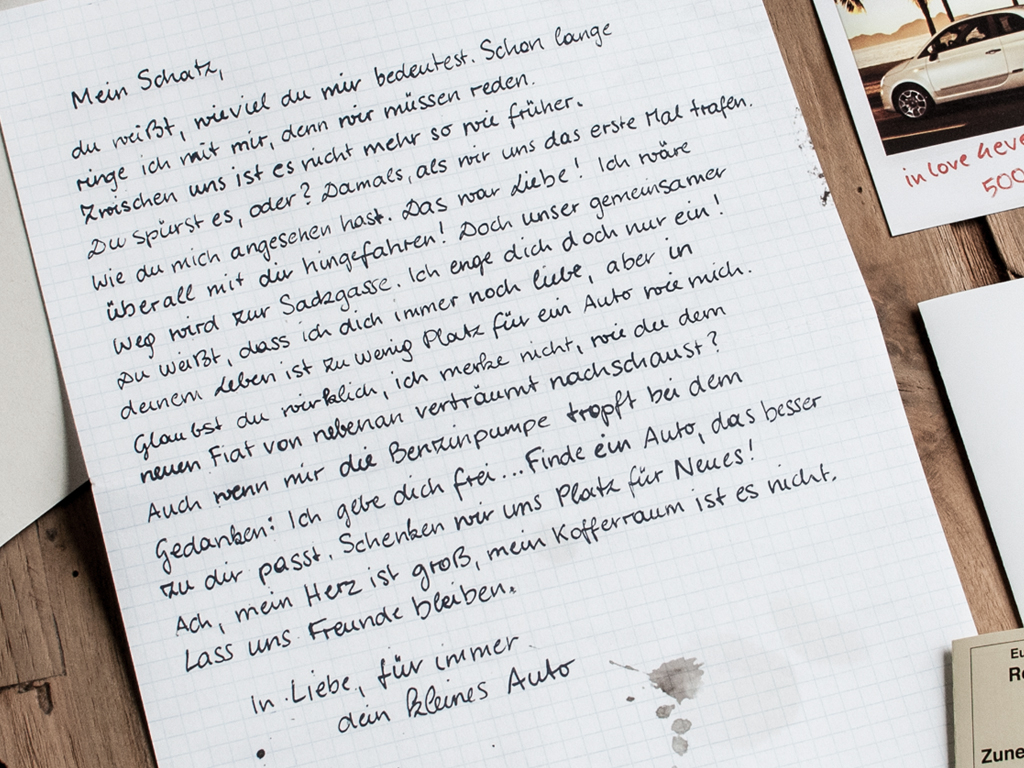 Mein Schatz,
du weißt, wieviel du mir bedeutest. Schon lange
ringe ich mit mir, denn wir müssen reden.
Zwischen uns ist es nicht mehr so wie früher.
Du spürst es, oder? Damals, als wir uns das erste Mal trafen.
Wie du mich angesehen hast. Das war Liebe! Ich wäre
überall mit dir hingefahren! Doch unser gemeinsamer
Weg wird zur Sackgasse. Ich enge dich doch nur ein!
Du weißt, dass ich dich immer noch liebe, aber in
deinem Leben ist zu wenig Platz für ein Auto wie mich.
Glaubst du wirklich, ich merke nicht, wie du dem
neuen Fiat von nebenan verträumt nachschaust?
Auch wenn mir die Benzinpumpe tropft bei dem
Gedanken: Ich gebe dich frei... Finde ein Auto, das besser
zu dir passt. Schenken wir uns Platz für Neues!
Ach, mein Herz ist groß, mein Kofferraum ist es nicht.
Lass uns Freunde bleiben.
In Liebe, für immer
dein kleines Auto
in love
500
Eu
Re
Zune